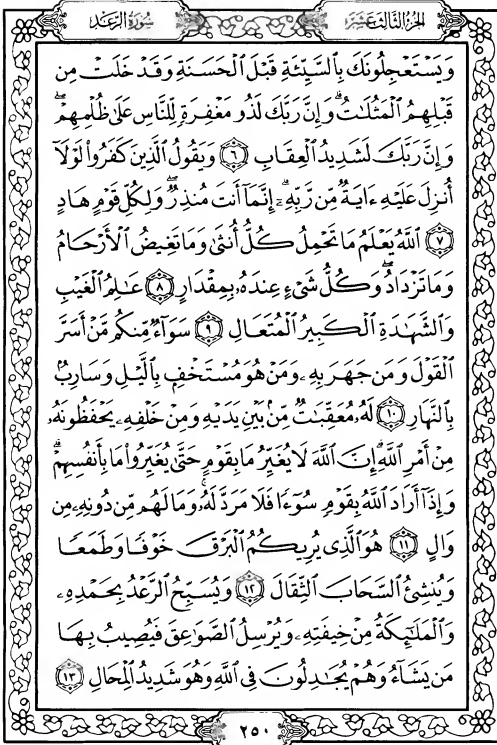 الجزء الثالث عشر
سورة الرعد
وَيَسْتَعْجِلُونَكَ بِالسَّيِّئَةِ قَبْلَ الْحَسَنَةِ وَقَدْ خَلَتْ مِن
قَبْلِهِمُ الْمَثُلَاتُ ۗ وَإِنَّ رَبَّكَ لَذُو مَغْفِرَةٍ لِّلنَّاسِ عَلَىٰ ظُلْمِهِمْ ۖ
وَإِنَّ رَبَّكَ لَشَدِيدُ الْعِقَابِ ٦ وَيَقُولُ الَّذِينَ كَفَرُوا لَوْلَا
أُنزِلَ عَلَيْهِ ءَايَةٌ مِّن رَّبِّهِۦٓ ۗ إِنَّمَآ أَنتَ مُنذِرٌ ۖ وَلِكُلِّ قَوْمٍ هَادٍ
٧ اللَّهُ يَعْلَمُ مَا تَحْمِلُ كُلُّ أُنثَىٰ وَمَا تَغِيضُ الْأَرْحَامُ
وَمَا تَزْدَادُ ۖ وَكُلُّ شَىْءٍ عِندَهُۥ بِمِقْدَارٍ ٨ عَٰلِمُ الْغَيْبِ
وَالشَّهَٰدَةِ الْكَبِيرُ الْمُتَعَالِ ٩ سَوَآءٌ مِّنكُم مَّنْ أَسَرَّ
الْقَوْلَ وَمَن جَهَرَ بِهِۦ وَمَنْ هُوَ مُسْتَخْفٍ بِالَّيْلِ وَسَارِبٌۢ
بِالنَّهَارِ ١٠ لَهُۥ مُعَقِّبَٰتٌ مِّنۢ بَيْنِ يَدَيْهِ وَمِنْ خَلْفِهِۦ يَحْفَظُونَهُۥ
مِنْ أَمْرِ اللَّهِ ۗ إِنَّ اللَّهَ لَا يُغَيِّرُ مَا بِقَوْمٍ حَتَّىٰ يُغَيِّرُوا مَا بِأَنفُسِهِمْ ۗ
وَإِذَآ أَرَادَ اللَّهُ بِقَوْمٍ سُوٓءًا فَلَا مَرَدَّ لَهُۥ ۚ وَمَا لَهُم مِّن دُونِهِۦ مِن
وَالٍ ١١ هُوَ الَّذِى يُرِيكُمُ الْبَرْقَ خَوْفًا وَطَمَعًا
وَيُنشِئُ السَّحَابَ الثِّقَالَ ١٢ وَيُسَبِّحُ الرَّعْدُ بِحَمْدِهِۦ
وَالْمَلَٰٓئِكَةُ مِنْ خِيفَتِهِۦ وَيُرْسِلُ الصَّوَٰعِقَ فَيُصِيبُ بِهَا
مَن يَشَآءُ وَهُمْ يُجَٰدِلُونَ فِى اللَّهِ وَهُوَ شَدِيدُ الْمِحَالِ ١٣
٢٥٠